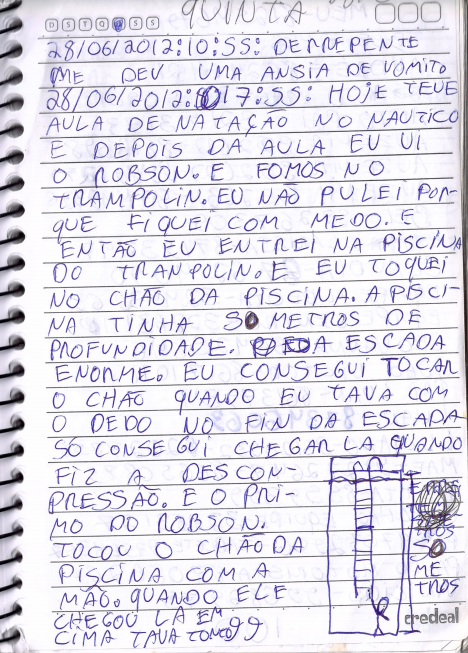 QUINTA
D S T Q Q S S
28/06/2012:10:55: DERREPENTE
ME DEU UMA ANSIA DE VOMITO
28/06/2012:17:55: HOJE TEVE
AULA DE NATAÇÃO NO NAUTICO
E DEPOIS DA AULA EU VI
O ROBSON. E FOMOS NO
TRAMPOLIN. EU NÃO PULEI POR-
QUE FIQUEI COM MEDO. E
ENTÃO EU ENTREI NA PISCINA
DO TRANPOLIN. E EU TOQUEI
NO CHÃO DA PISCINA. A PISCI-
NA TINHA 50 METROS DE
PROFUNDIDADE. DA ESCADA
ENORME. EU CONSEGUI TOCAR
O CHÃO QUANDO EU TAVA COM
O DEDO NO FIN DA ESCADA
SÓ CONSEGUI CHEGAR LA QUANDO
FIZ A DESCON-
PRESSÃO. E O PRI-
MO DO ROBSON.
TOCOU O CHÃO DA
PISCINA COM A
MÃO. QUANDO ELE
CHEGOU LA EM
CIMA TAVA TONTO
50
ME
TROS
credeal